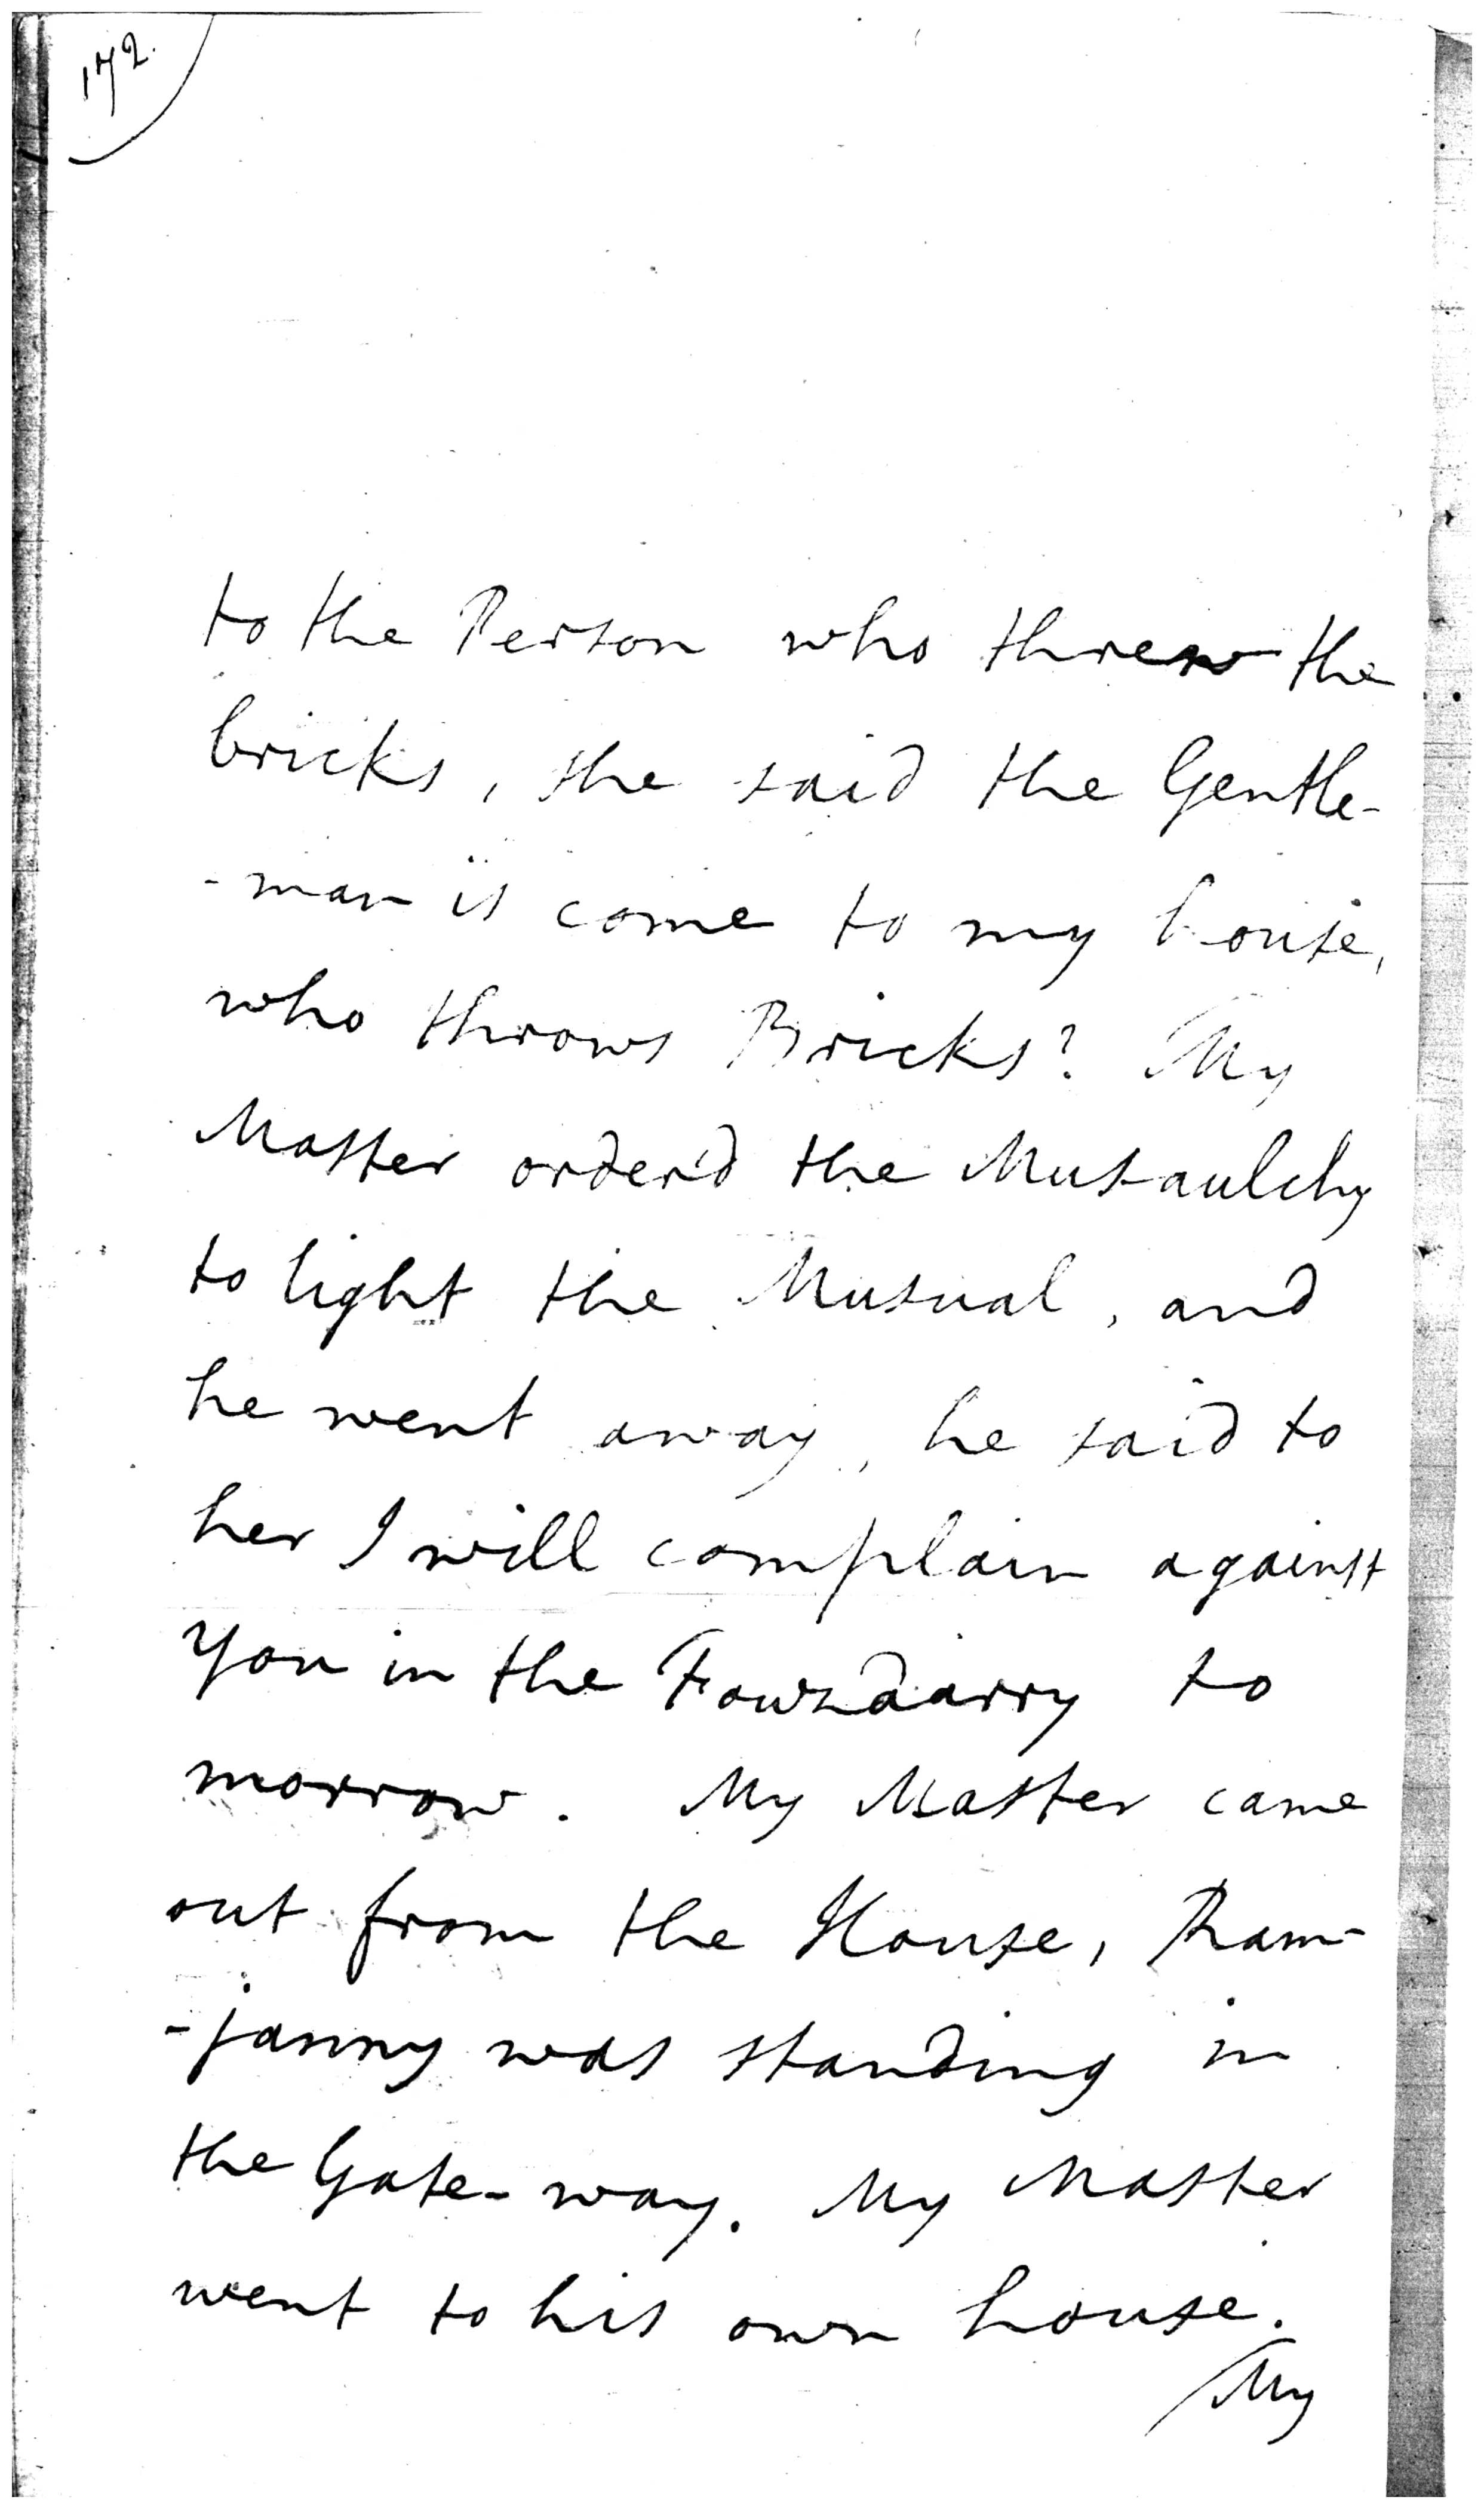 172.
to the Person who threw the
bricks, she said the Gentle-
-man is come to my house,
who throws Bricks? My
Master order'd the Musaulchy
to light the Musual, and
he went away, he said to
her I will complain against
you in the Fowzdarry to
morrow. My Master came
out from the House, Ram-
-janny was standing in
the Gate-way. My Master
went to his own house.
My